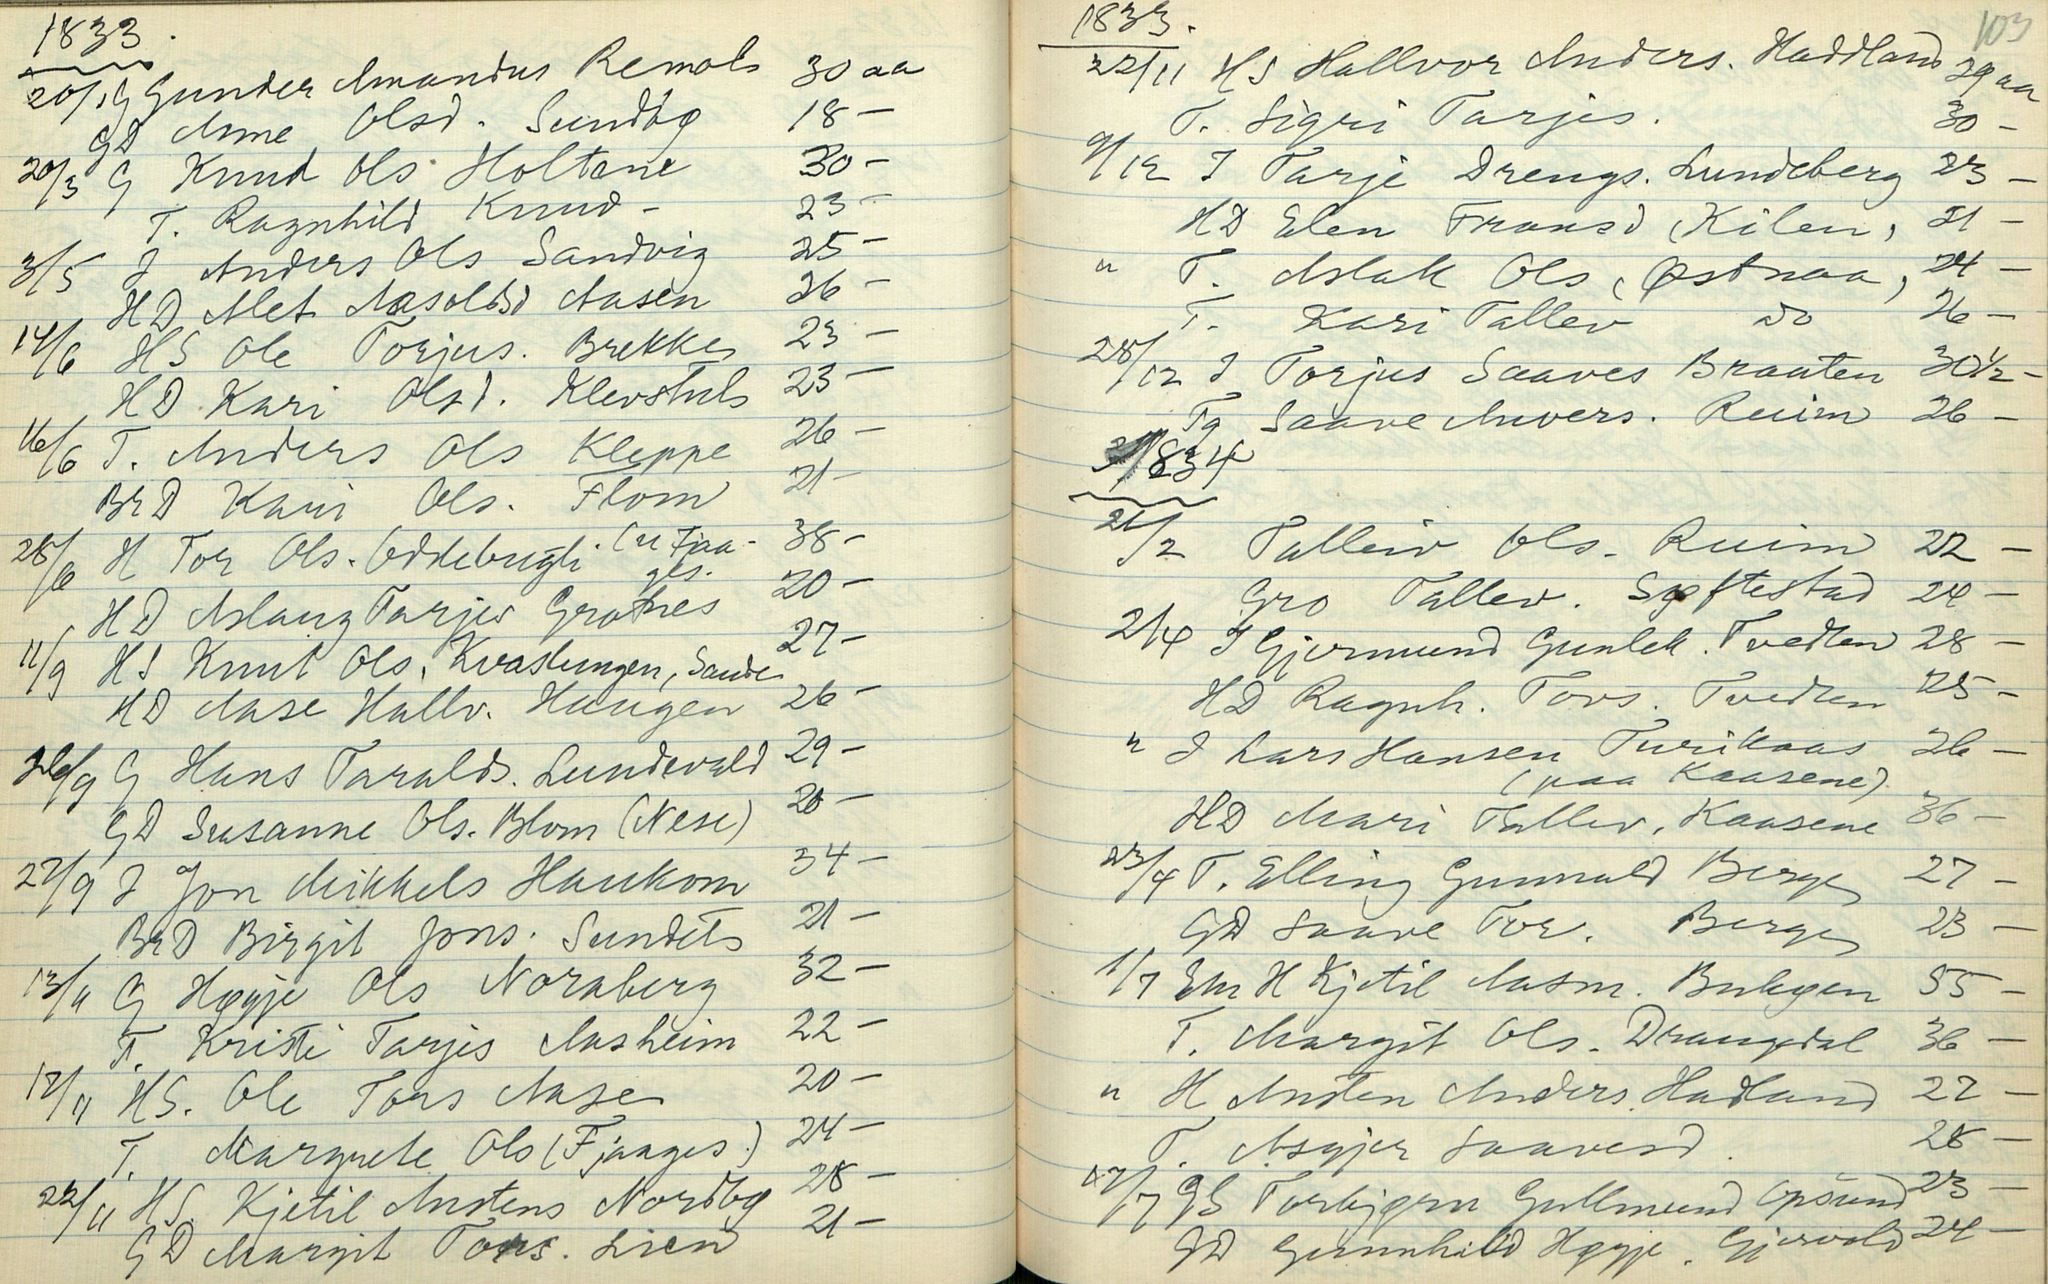 1833.
20/1 G Gunder Amandus Remols 30 aa
GD Anne Olsd. Sundbø 18 —
20/3 G Knud Ols Holtane 30 —
T. Ragnhild Knud — 23 —
3/5 I Anders Ols Sandvig 25 —
HD Alet Aasoldsd Aasen 26 —
14/6 HS Ole Torjus. Brekke 23 —
HD Kari Olsd. Klevstul 23 —
16/6 T. Anders Ols Kleppe 26 —
BrD Kari Ols. Flom 21 —
28/6 H Tor Ols. Oddebugti. (u Fjaa- 38 —
ges.
HD Aslaug Tarjes Grotnes 20 —
11/9 HS Knut Ols. Kvaslungen, Sande 27 —
HD Aase Hallv. Haugen 26 —
26/9 G Hans Taralds. Lundevald 29 —
GD Susanne Ols. Blom (Nese) 20 —
27/9 I Jon Mikkels Haukom 34 —
BrD Birgit Jons. Sundets 21 —
13/11 G Høyje Ols Nornberg 32 —
T. Kristi Tarjes Aasheim 22 —
17/11 HS. Ole Tors Aase 20 —
T. Margrete Ols (Fjaages.) 24 —
22/11 HS. Kjetil Austens Nordbø 28 —
GD Margit Tors. Lien 21 —
103
1833.
22/11 HS Hallvor Anders. Haddland 29 aa
T. Sigri Tarjes. 30 —
9/12 I Tarje Drengs. Lundeberg 23 —
HD Elen Fransd (Kilen, 21 —
" T. Aslak Ols (Østnaa, 24 —
T. Kari Tallev do 26 —
28/12 I Torjus Saaves Braaten 30 1/2 —
Tg Saave Anvers. Ruim 26 —
1834
21/2 Talleiv Ols. Ruim 22 —
Gro Tallev. Søftestad 24 —
2/4 I Gjermund Gunlek. Tvedten 28 —
HD Ragnh. Tovs. Tvedten 25 —
" I Lars Hansen Turikaas 26 —
(paa Kaasene)
HD Mari Tallev. Kaasene 36 —
23/4 T. Elling Gunnuld Berge 27 —
GD Saave Tor. Berge 23 —
1/7 Em H Kjetil Aasm. Bulegen 55 —
T. Margit Ols. Drangedal 36 —
" H Austen Anders. Hadland 27 —
T. Asgjer Saavesd. 28 —
17/7 GS Torbjørn Gullmund Opsund 23 —
GD Gunnhild Høyje. Gjervold 24 —